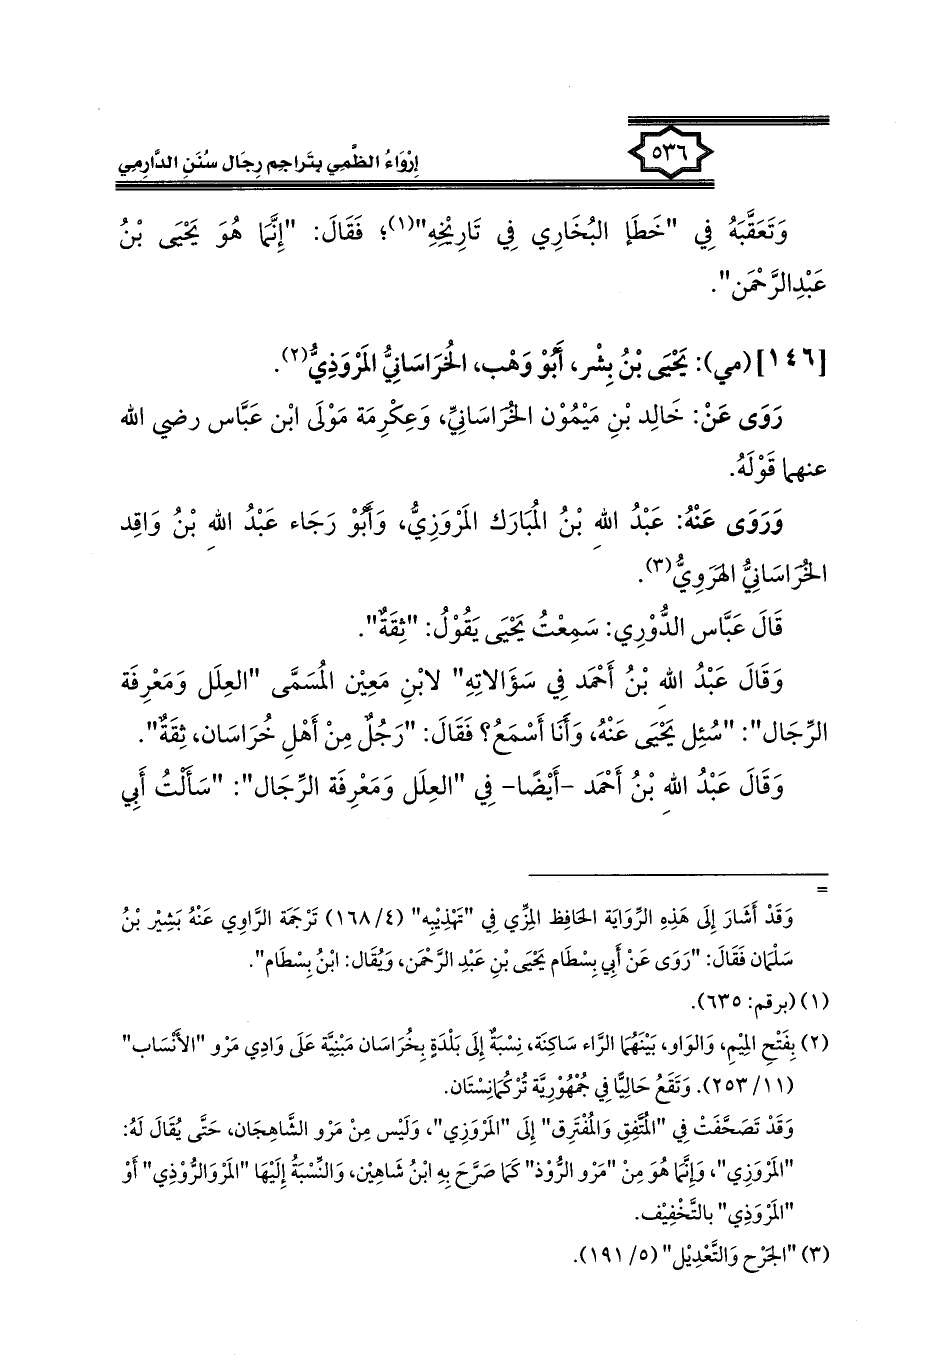 ٥٣٦
إرْوَاءُ الظَّمِي بتَراجم رِجَال سُنَنِ الدَّارِمِي
وَتَعَقَّبَهُ فِي "خَطَإ البُخَارِي فِي تَارِيْخِهِ"(١)؛ فَقَالَ: "إِنَّمَا هُوَ يَحْيَى بْنُ
عَبْدِالرَّحْمَن".
[١٤٦] (مي): يَحْيَى بْنُ بِشْر، أَبُوْ وَهْب، الخُرَاسَانِيُّ المَرْوَذِيُّ(٢).
رَوَى عَنْ: خَالِد بْنِ مَيْمُوْن الخُرَاسَانِيِّ، وَعِكْرِمَة مَوْلَى ابْن عَبَّاس رضي الله
عنهما قَوْلَهُ.
وَرَوَى عَنْهُ: عَبْدُ اللهِ بْنُ المُبَارَك المَرْوَزِيُّ، وَأَبُوْ رَجَاء عَبْدُ اللهِ بْنُ وَاقِد
الخُرَاسَانِيُّ الهَرَوِيُّ(٣).
قَالَ عَبَّاس الدُّوْرِي: سَمِعْتُ يَحْيَى يَقُوْلُ: "ثِقَةٌ".
وَقَالَ عَبْدُ اللهِ بْنُ أَحْمَد فِي سَؤَالاتِهِ" لابْنِ مَعِيْن المُسَمَّى "العِلَل وَمَعْرِفَة
الرِّجَال": "سُئِل يَحْيَى عَنْهُ، وَأَنَا أَسْمَعُ؟ فَقَالَ: "رَجُلٌ مِنْ أَهْلِ خُرَاسَان، ثِقَةٌ".
وَقَالَ عَبْدُ اللهِ بْنُ أَحْمَد -أَيْضًا- فِي "العِلَل وَمَعْرِفَة الرِّجَال": "سَأَلْتُ أَبِي
=
وَقَدْ أَشَارَ إِلَى هَذِهِ الرِّوَايَة الحَافِظ المِزِّي فِي "تَهْذِيْبِه" (٤/ ١٦٨) تَرْجَمَة الرَّاوِي عَنْهُ بَشِيْر بْنُ
سَلْمَان فَقَالَ: "رَوَى عَنْ أَبِي بِسْطَام يَحْيَى بْنِ عَبْدِ الرَّحْمَن، وَيُقَال: ابْنُ بِسْطَام".
(١) (برقم: ٦٣٥).
(٢) بِفَتْحِ المِيْمِ، وَالوَاو، بَيْنَهُمَا الرَّاء سَاكِنَة، نِسْبَةٌ إِلَى بَلْدَةٍ بِخُرَاسَان مَبْنِيَّة عَلَى وَادِي مَرْو "الأَنْسَاب"
(١١/ ٢٥٣). وَتَقَعُ حَالِيًّا فِي جُمْهُوْرِيَّة تُرْكُمَانِسْتَان.
وَقَدْ تَصَحَّفَتْ فِي "المُتَّفِق وَالمُفْتَرِق" إِلَى "المَرْوَزِي"، وَلَيْس مِنْ مَرْو الشَّاهِجَان، حَتَّى يُقَال لَهُ:
"المَرْوَزِي"، وَإِنَّمَا هُوَ مِنْ "مَرْو الرُّوْذ" كَمَا صَرَّحَ بِهِ ابْنُ شَاهِيْن، وَالنِّسْبَةُ إِلَيْهَا "المَرْوَالرُّوْذِي" أَوْ
"المَرْوَذِي" بالتَّخْفِيْف.
(٣) "الجَرْح وَالتَّعْدِيْل" (٥/ ١٩١).